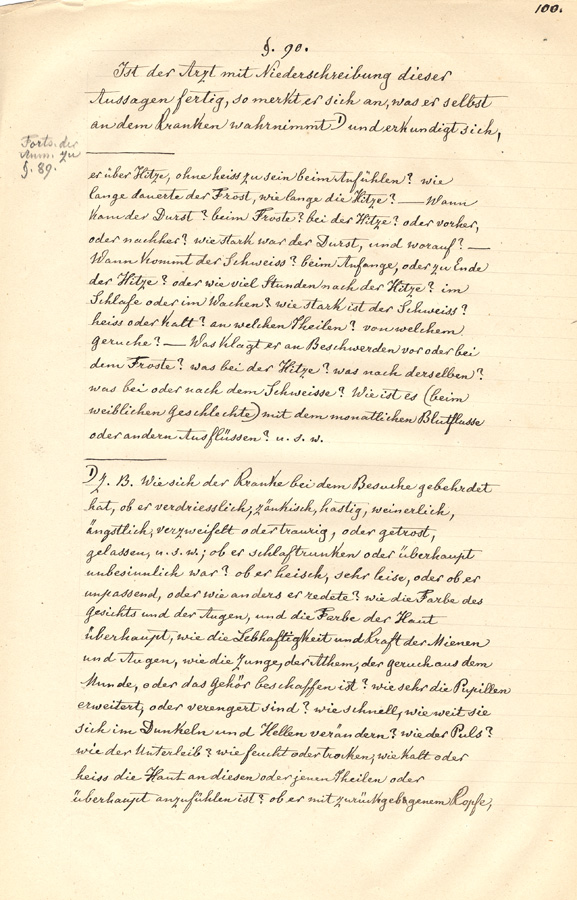 100.
§. 90.
Ist der Arzt mit Niederschreibung dieser
Aussagen fertig, so merkt er sich an, was er selbst
an dem Kranken wahrnimmt 1) und erkundigt sich,
Forts. der
Anm. zu
§. 89.
er über Hitze, ohne heiss zu sein beim Anfühlen? wie
lange dauerte der Frost, wie lange die Hitze? — Wann
kam der Durst? beim Froste? bei der Hitze? oder vorher,
oder nachher? wie stark war der Durst, und worauf? —
Wann kommt der Schweiss? beim Anfange, oder zu Ende
der Hitze? oder wie viel Stunden nach der Hitze? im
Schlafe oder im Wachen? wie stark ist der Schweiss?
heiss oder kalt? an welchen Theilen? von welchem
Geruche? — Was klagt er an Beschwerden vor oder bei
dem Froste? was bei der Hitze? was nach derselben?
was bei oder nach dem Schweisse? Wie ist es (beim
weiblichen Geschlechte) mit dem monatlichen Blutflusse
oder andern Ausflüssen? u. s. w.
1) Z. B. Wie sich der Kranke bei dem Besuche gebehrdet
hat, ob er verdriesslich, zänkisch, hastig, weinerlich,
ängstlich, verzweifelt oder traurig, oder getrost,
gelassen, u. s. w.; ob er schlaftrunken oder überhaupt
unbesinnlich war? ob er heisch, sehr leise, oder ob er
unpassend, oder wie anders er redete? wie die Farbe des
Gesichts und der Augen, und die Farbe der Haut
überhaupt, wie die Lebhaftigkeit und Kraft der Mienen
und Augen, wie die Zunge, der Athem, der Geruch aus dem
Munde, oder das Gehör beschaffen ist? wie sehr die Pupillen
erweitert, oder verengert sind? wie schnell, wie weit sie
sich im Dunkeln und Hellen verändern? wie der Puls?
wie der Unterleib? wie feucht oder trocken, wie kalt oder
heiss die Haut an diesen oder jenen Theilen oder
überhaupt anzufühlen ist? ob er mit zurückgebogenem Kopfe,